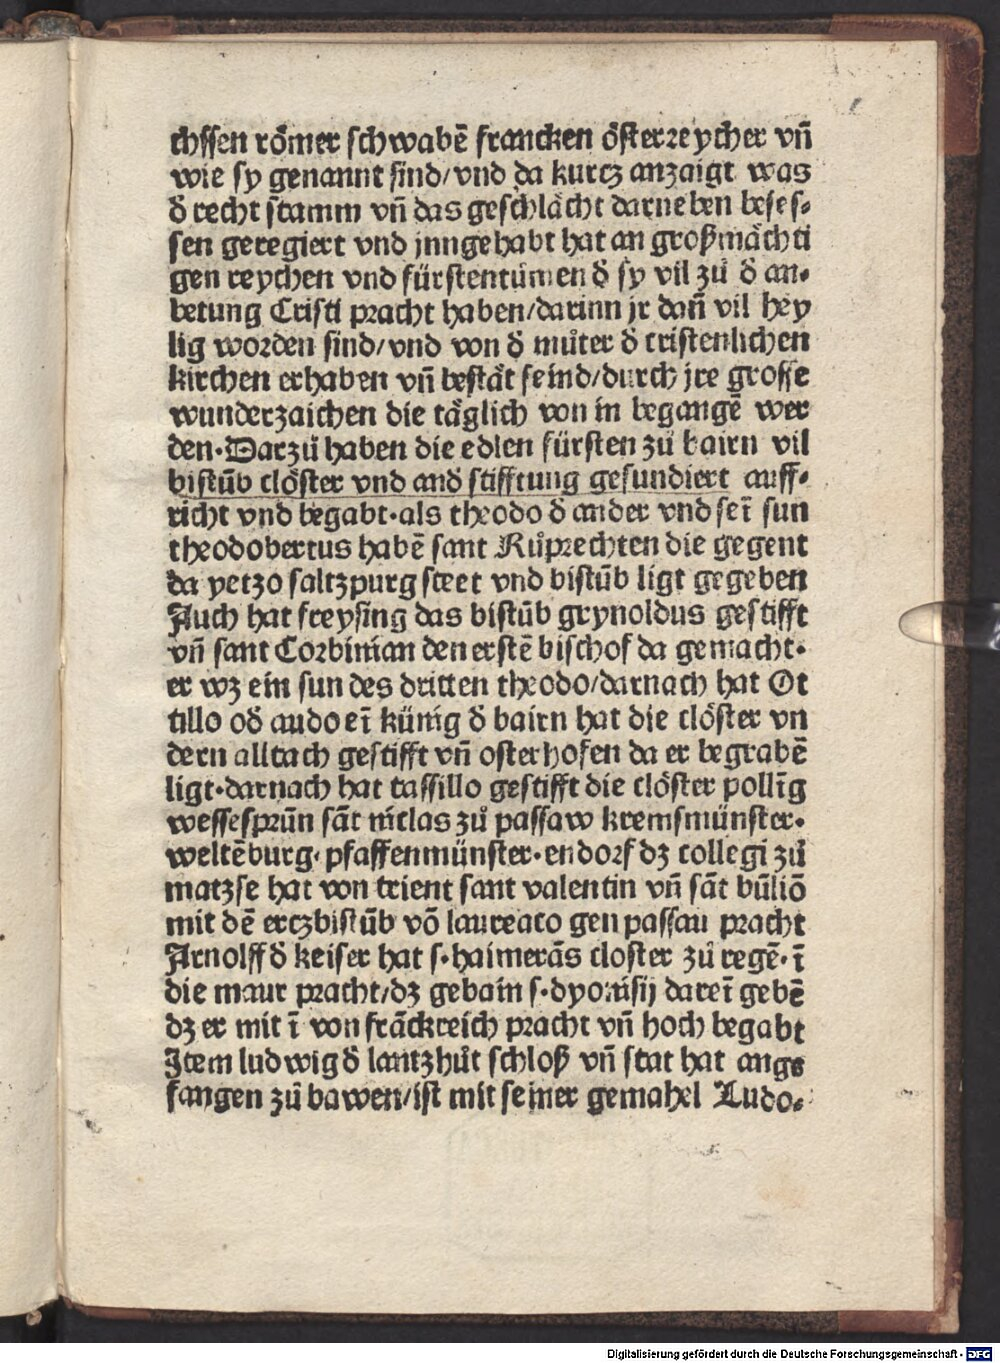 chssen römer schwabē francken österreycher vn̄
wie sy genannt sind/vnd da kurcz anzaigt was
d̄ recht stamm vn̄ das geschlächt darneben beses⸗
sen geregiert vnd jnngehabt hat an großmächti
gen reychen vnd fürstentůmen d̄ sy vil zů d̄ an⸗
betung Cristi pracht haben/darinn jr dan̄ vil hey
lig worden sind/vnd von d̄ můter d̄ cristenlichen
kirchen erhaben vn̄ bestät seind/durch jre grosse
wunderzaichen die täglich von in begangē wer
den·Darzů haben die edlen fürsten zů bairn vil
bistūb clöster vnd and̄ stifftung gefundiert auff⸗
richt vnd begabt·als theodo d̄ ander vnd seī sun
theodobertus habē sant Růprechten die gegent
da yetzo saltzpurg steet vnd bistūb ligt gegeben
Auch hat freysing das bistūb grynoldus gestifft
vn̄ sant Corbinian den erstē bischof da gemacht·
er wz ein sun des dritten theodo/darnach hat Ot
tillo od̄ audo eī künig d̄ bairn hat die clöster vn
dern alltach gestifft vn̄ osterhofen da er begrabē
ligt·darnach hat tassillo gestifft die clöster pollīg
wessesprūn sāt niclas zů passaw kremsmünster·
weltēburg·pfaffenmünster·endorf dz collegi zů
matzse hat von trient sant valentin vn̄ sāt būliō
mit dē erczbistūb vō laureaco gen passau pracht
Arnolff d̄ keiser hat s·haimerās closter zů regē·ī
die maur pracht/dz gebain s·dyonisij dareī gebē
dz er mit ī von frāckreich pracht vn̄ hoch begabt
Item ludwig d̄ lantzhůt schloß vn̄ stat hat ange
fangen zů bawen/ist mit seiner gemahel Ludo⸗
Digitalisierung gefördert durch die Deutsche Forschungsgemeinschaft - DFG